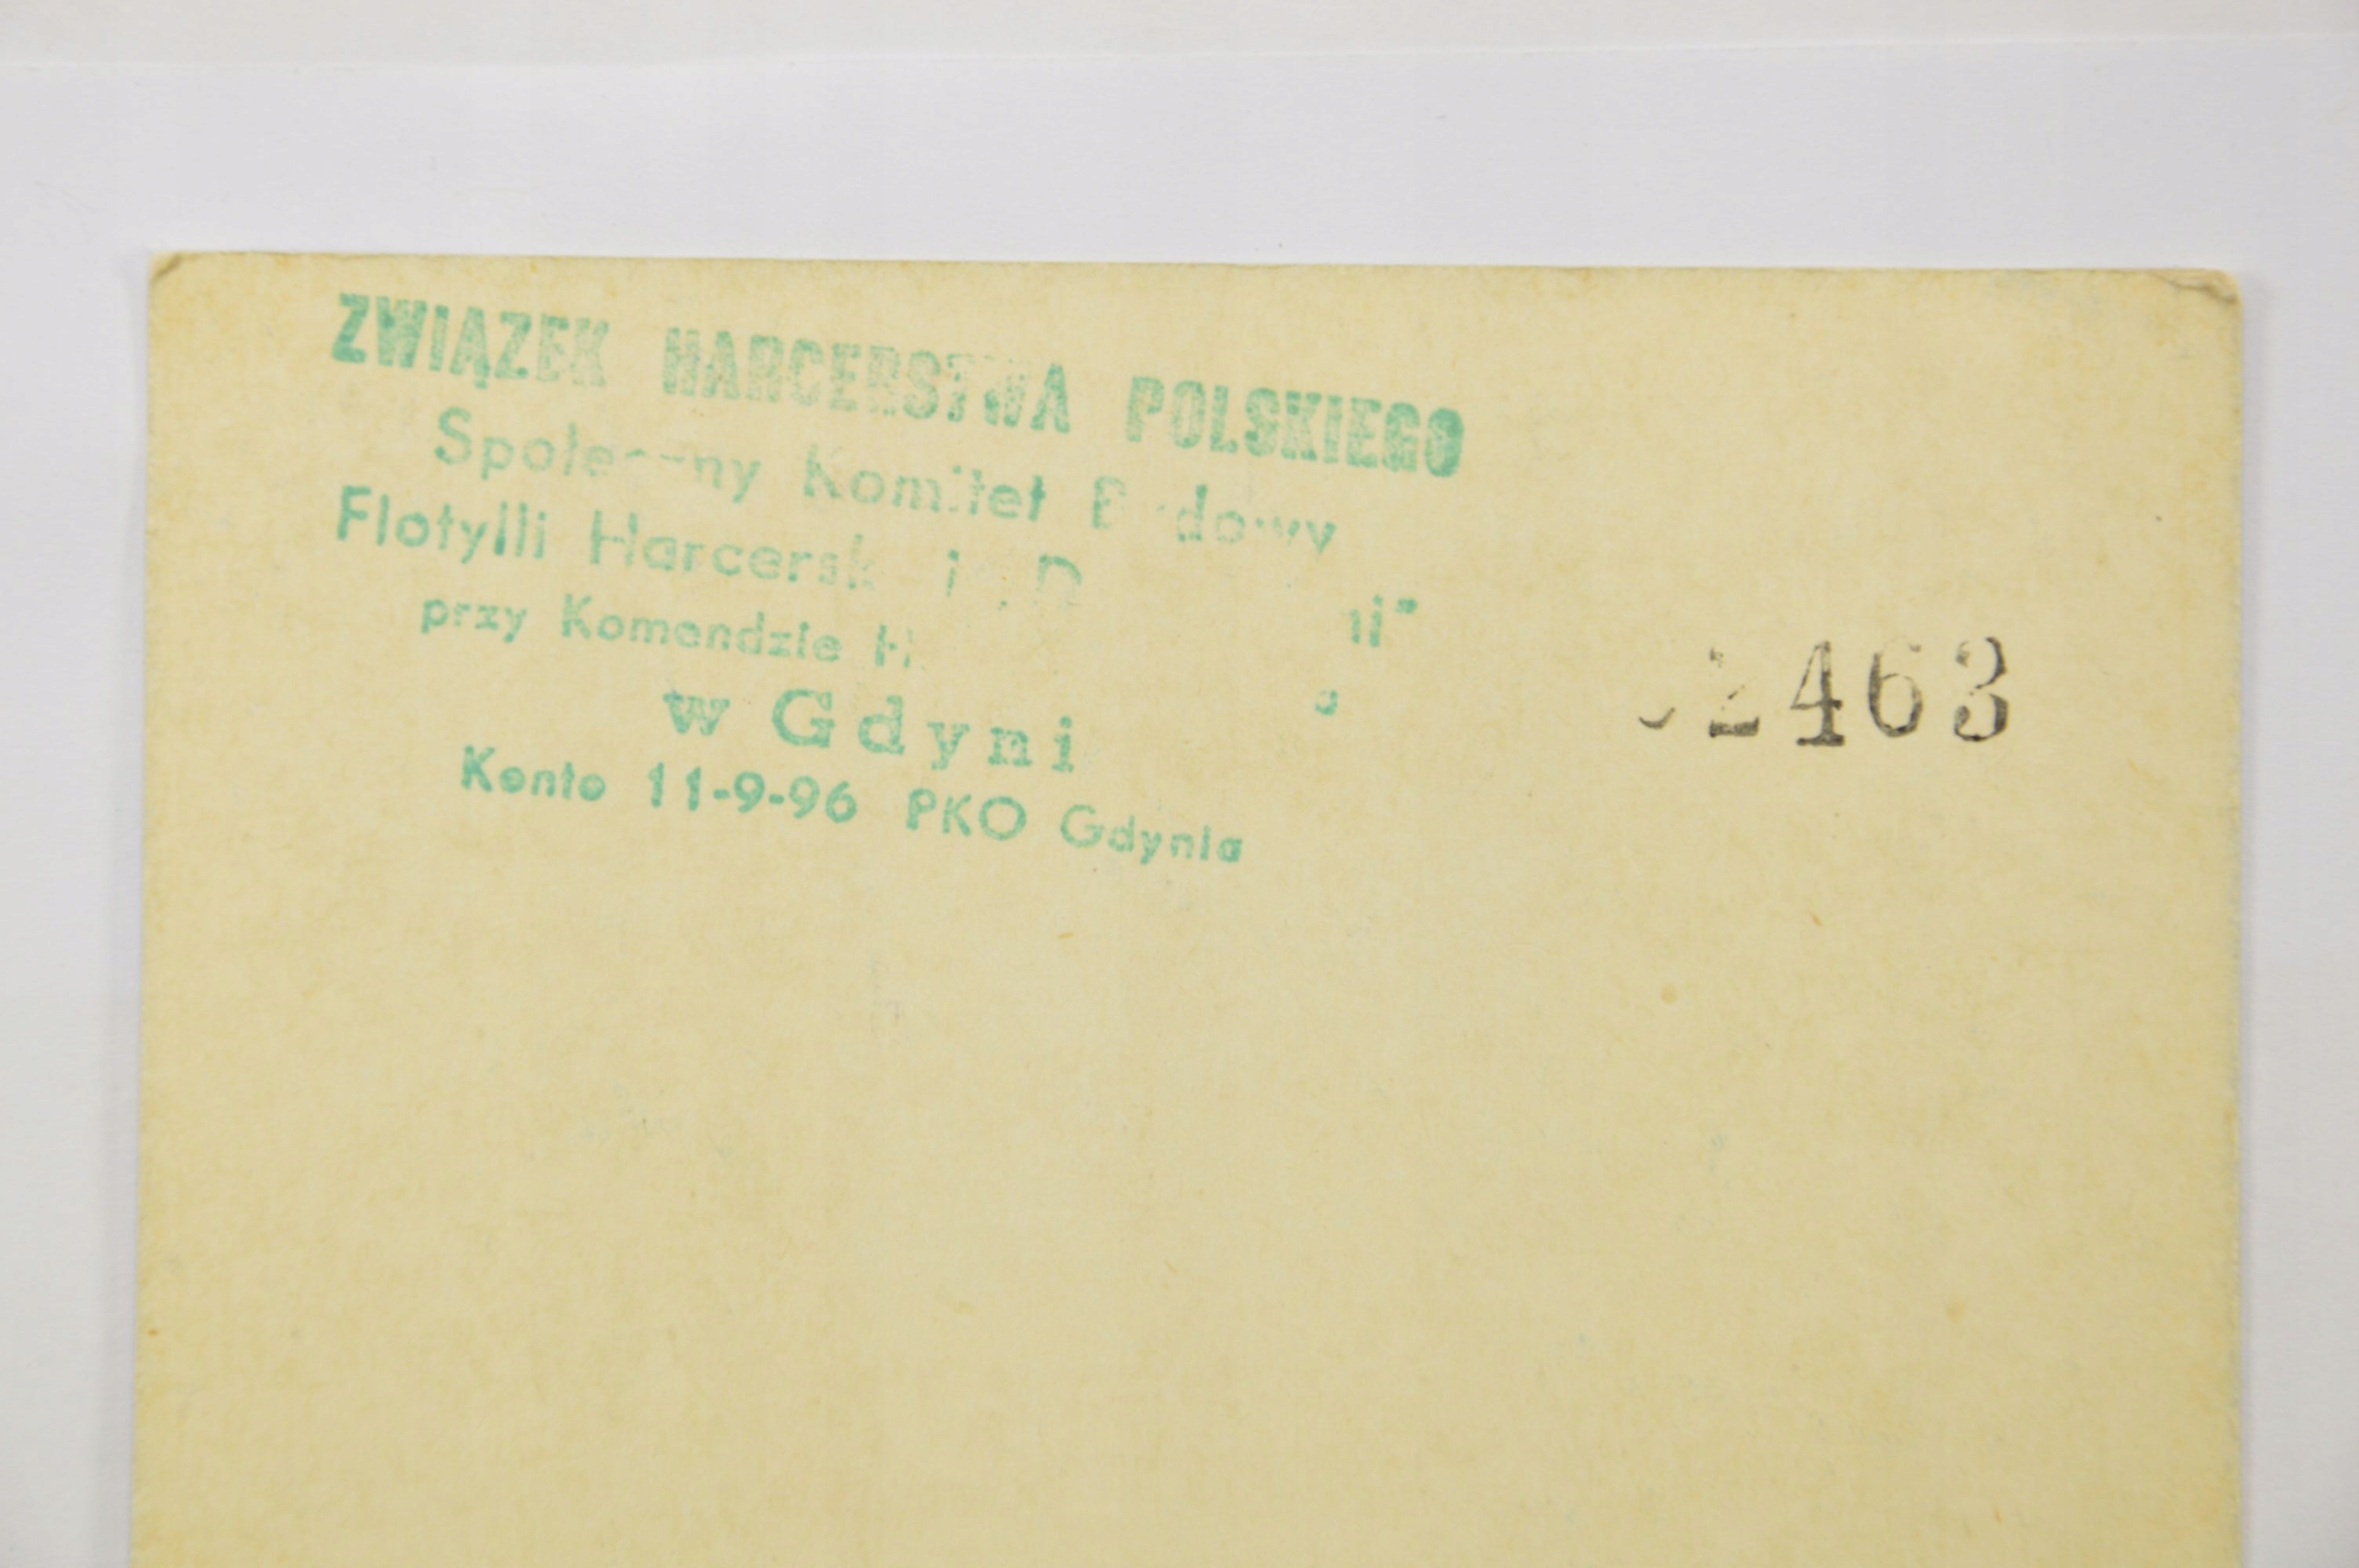 ZWIĄZEK HARCERSTWA POLSKIEGO
Społeczny Komitet Budowy
Flotylli
przy Komendzie
w Gdyni
Konto 11-9-96 PKO Gdynia
2463